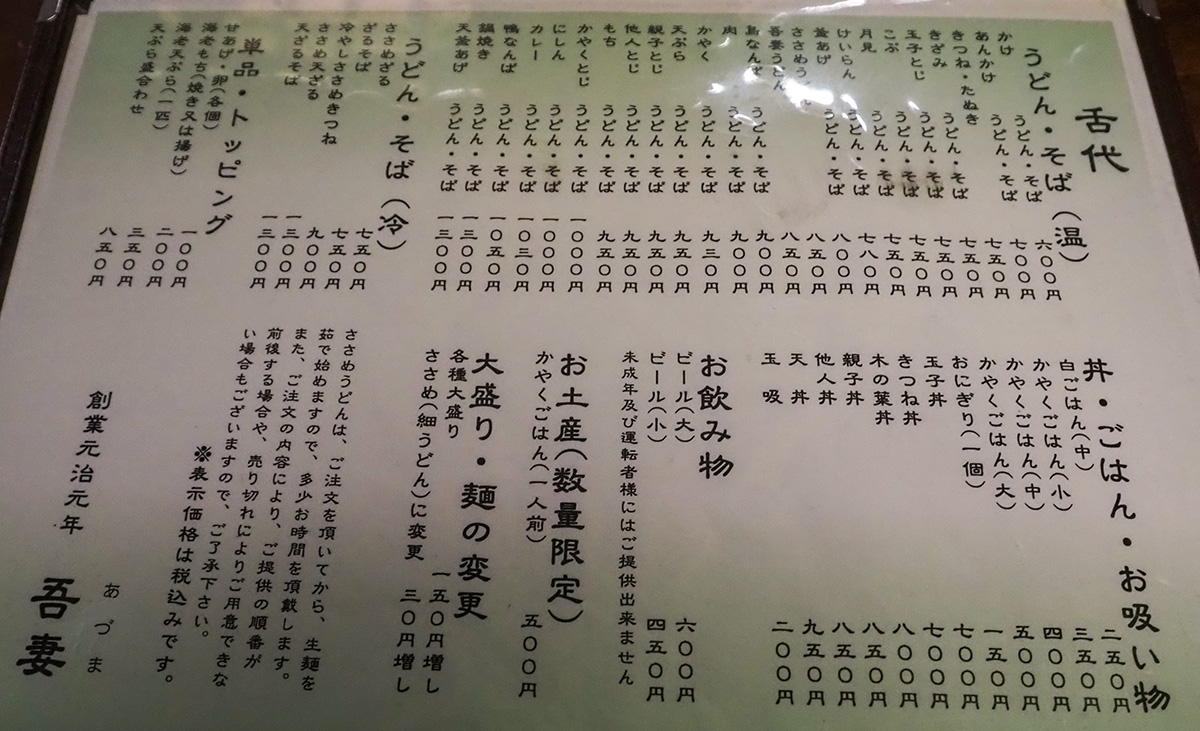 舌代
うどん・そば(温)
かけ うどん・そば 六〇〇円
あんかけ うどん・そば 七〇〇円
きつね・たぬき うどん・そば 七五〇円
きざみ うどん・そば 七五〇円
玉子とじ うどん・そば 七五〇円
こぶ うどん・そば 七五〇円
月見 うどん・そば 七五〇円
けいらん うどん・そば 七八〇円
釜あげ うどん・そば 八〇〇円
ささめうどん 八五〇円
吾妻うどん 八五〇円
鳥なんば うどん・そば 九〇〇円
肉 うどん・そば 九〇〇円
かやく うどん・そば 九三〇円
天ぷら うどん・そば 九五〇円
親子とじ うどん・そば 九五〇円
他人とじ うどん・そば 九五〇円
もち うどん・そば 九五〇円
かやくとじ うどん・そば 一〇〇〇円
にしん うどん・そば 一〇〇〇円
カレー うどん・そば 一〇三〇円
鴨なんば うどん・そば 一〇五〇円
鍋焼き うどん・そば 一三〇〇円
天釜あげ うどん・そば 一三〇〇円
うどん・そば(冷)
ささめざる 七五〇円
ざるそば 七五〇円
冷やしささめきつね 九〇〇円
ささめ天ざる 一三〇〇円
天ざるそば 一三〇〇円
単品・トッピング
甘あげ・卵(各個) 一〇〇円
海老もち(焼き又は揚げ) 二〇〇円
海老天ぷら(一匹) 三五〇円
天ぷら盛合わせ 八五〇円
丼・ごはん・お吸い物
白ごはん(中) 二五〇円
かやくごはん(小) 三五〇円
かやくごはん(中) 四〇〇円
かやくごはん(大) 五〇〇円
おにぎり(一個) 一五〇円
玉子丼 七〇〇円
きつね丼 七〇〇円
木の葉丼 八〇〇円
親子丼 八五〇円
他人丼 八五〇円
天丼 九五〇円
玉吸 二〇〇円
お飲み物
ビール(大) 六〇〇円
ビール(小) 四五〇円
未成年及び運転者様にはご提供出来ません
お土産(数量限定)
かやくごはん(一人前) 五〇〇円
大盛り・麺の変更
各種大盛り 一五〇円増し
ささめ(細うどん)に変更 三〇円増し
ささめうどんは、ご注文を頂いてから、生麺を
茹で始めますので、多少お時間を頂戴します。
また、ご注文の内容により、ご提供の順番が
前後する場合や、売り切れによりご用意できな
い場合もございますので、ご了承下さい。
※表示価格は税込みです。
創業元治元年
あづま
吾妻